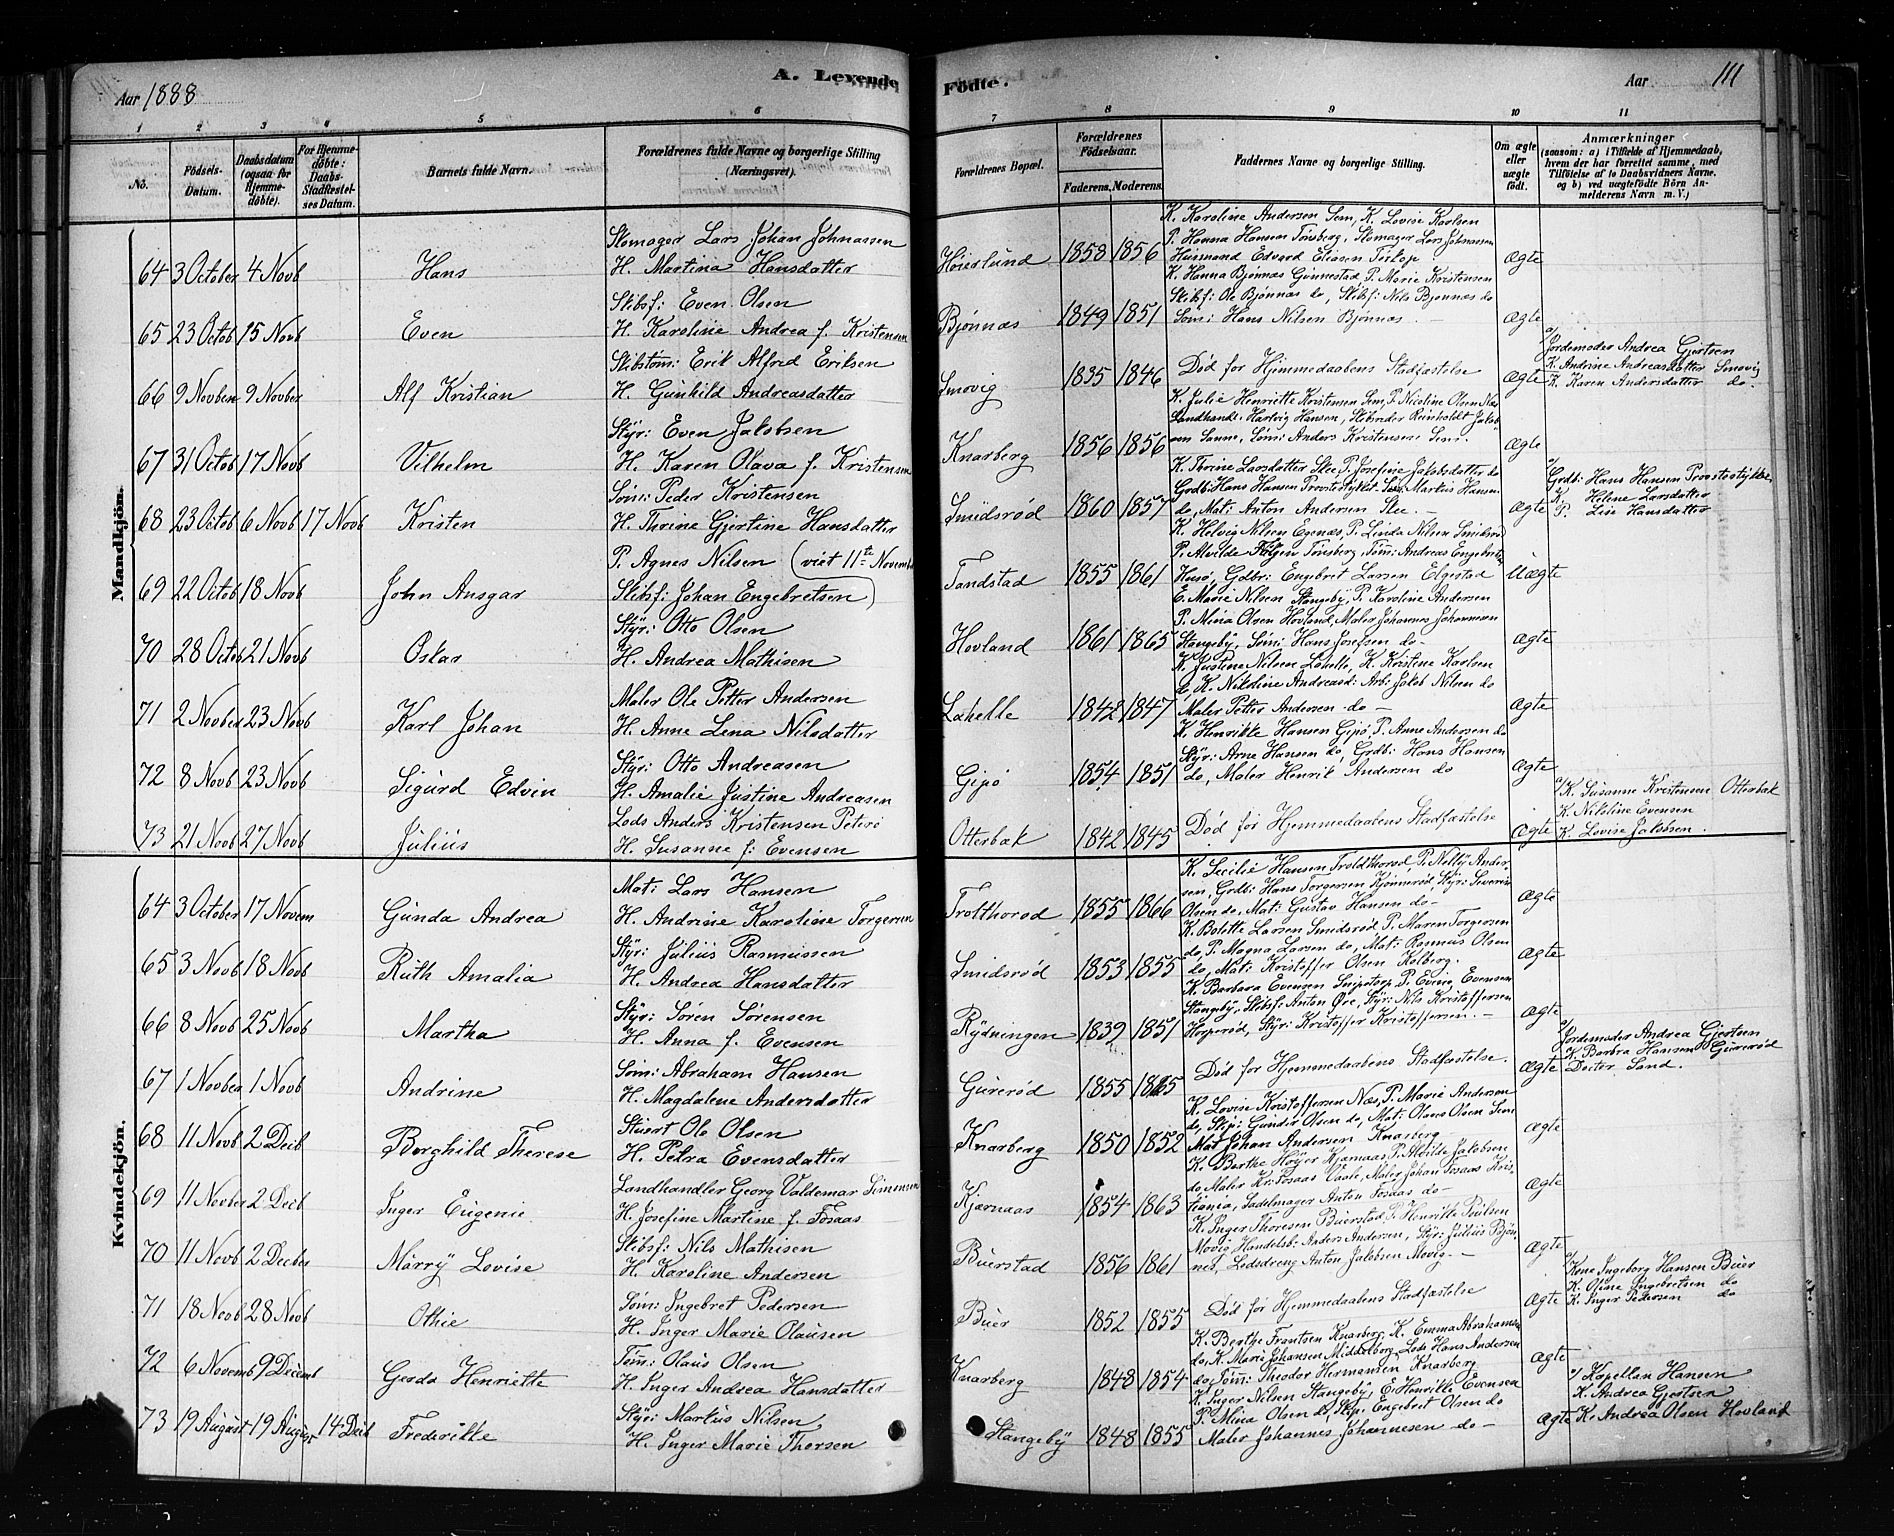 Aar 1888
A. Levende
Födte.
Aar
111
1 2 3 4 5 6 7 8 9 10 11
No.
Födsels-Datum.
Daabsdatum (ogsaa for Hjemme-döbte).
For Hjemme-döbte: Daabs-Stadfæstel-ses Datum.
Barnets fulde Navn.
Forældrenes fulde Navne og borgerlige Stilling (Næringsvei).
Forældrenes Bopæl.
Forældrenes Födselsaar.
Faderens. Moderens.
Faddernes Navne og borgerlige Stilling.
Om ægte eller uægte födt.
Anmærkninger
(saasom: a) i Tilfælde af Hjemmedaab, hvem der har forrettet samme, med Tilföielse af to Daabsvidners Navne, og b) ved uægtefödte Börn Anmelderens Navn m. V.)
Mandkjön.
64 3 October 4 Novb Hans
Skomager Lars Johan Johnassen
H. Martina Hansdatter
Høierlund 1858 1856
K. Karoline Andersen Sem, K. Lovise Karlsen
P. Hanna Hansen Tønsberg, Skomager Lars Johnassen
Husmand Edvard Eliasen Tørkop
ægte
65 23 Octob 15 Novb Even
Skibsf: Even Olsen
H. Karoline Andrea f. Kristensen
Bjønnæs 1849 1851
K. Hanna Bjønnæs Gunnestad P. Marie Kristensen
Skibsf: Ole Bjønnæs do, Skibsf: Nils Bjønnæs do
Søm: Hans Nilsen Bjønnæs
ægte
66 9 Novben 9 Novber Alf Kristian
Skibstøm: Erik Alfred Eriksen
H. Gunhild Andreasdatter
Smovig 1835 1846
Død før Hjemmedaabens Stadfæstelse
ægte
a/ Jordemoder Andrea Gjertsen
K. Andrine Andreasdatter Smovig
K. Karen Andersdatter do.
67 31 Octob 17 Novb Vilhelm
Styr: Even Jakobsen
H. Karen Olava f. Kristensen
Knarberg 1856 1856
K. Julie Henriette Kristensen Sem, P. Nicoline Olsen Næs
Landhandl. Hartvig Hansen, Skibsreder Reinholdt Jakob
sen Sanne, Søm: Anders Kristensen Sem.
ægte
68 23 Octob 6 Novb 17 Novb Kristen
Søm: Peder Kristensen
H. Thrine Gjertine Hansdatter
Smidsrød 1860 1857
K. Thrine Larsdatter Slee, P. Josefine Jakobsdatter do
Grdb: Hans Hansen Provstestykket Sem, Markus Hansen
do, Mat: Anton Andersen Slee.
ægte
a/ Grdb: Hans Hansen Provstestykke,
K. Helene Larsdatter
P. Lise Hansdatter
69 22 Octob 18 Novb John Ansgar
P. Agnes Nilsen (viet 11te Novemb
Skibsf: Johan Engebretsen)
Tandstad 1855 1861
K. Helvig Nilsen Egenæs, P. Linda Nilsen Smidsrød
P. Alvilde Tønsberg, Tøm: Andreas Engebretsen
Husø, Gdbr: Engebret Larsen Elgestad
Uægte
70 28 Octob 21 Novb Oskar
Styr: Otto Olsen
H. Andrea Mathisen
Hovland 1861 1865
E. Marie Nilsen Stangeby, P. Karoline Andersen
P. Mina Olsen Hovland, Maler Johannes Johannesen
Stangeby, Søm: Hans Josefsen do
ægte
71 2 Novber 23 Novb Karl Johan
Maler Ole Petter Andersen
H. Anne Lena Nilsdatter
Lahelle 1842 1847
K. Justine Nilsen Lahelle, K. Kristine Karlsen
do, K. Nikoline Andreasd: Arb: Jakob Nilsen do
Maler Petter Andersen do
ægte
72 8 Novb 23 Novb Sigurd Edvin
Styr: Otto Andreasen
H. Amalie Justine Andreasen
Gipø 1854 1851
K. Henrikke Hansen Gipø, P. Anne Andersen do
Styr: Arne Hansen do, Grdb: Hans Hansen
do, Maler Henrik Andersen do
ægte
73 21 Novb 27 Novb Julius
Lods Anders Kristensen Peterø
H. Susanne f: Evensen
Otterbæk 1842 1845
Død før Hjemmedaabens Stadfæstelse
ægte
a/ K. Susanne Kristensen Otterbæk
K. Nikoline Evensen
K. Lovise Jakobsen.
Kvindekjön.
64 3 October 17 Novem Gunda Andrea
Mat: Lars Hansen
H. Andrine Karoline Torgersen
Trolthorød 1855 1866
K. Cecilie Hansen Troldthorød, P. Nelly Ander-
sen, Grdb: Hans Torgersen Kjønnerød, Styr: Severin
Olsen do, Mat: Gustav Hansen do
ægte
65 3 Novb 18 Novb Ruth Amalia
Styr: Julius Rasmussen
H. Andrea Hansdatter
Smidsrød 1853 1855
K. Bolette Larsen Smidsrød P. Maren Torgersen
do, P. Magna Larsen do, Mat: Rasmus Olsen
do, Mat: Kristoffer Olsen Kolberg.
ægte
66 8 Novb 25 Novb Martha
Styr: Søren Sørensen
H. Anna f. Evensen
Rydningen 1839 1851
K. Barbara Evensen P. Evensen
Stangeby, Skibsf: Anton Øre, Styr: Nils Kristoffersen
Horperød, Styr: Kristoffer Kristoffersen.
ægte
67 1 Novber 1 Novb Andrine
Søm: Abraham Hansen
H. Magdalene Andersdatter
Gurerød 1855 1865
Død før Hjemmedaabens Stadfæstelse.
ægte
a/ Jordemoder Andrea Gjertsen
K. Barbra Hansen Gurerød
Doctor Sand.
68 11 Novb 2 Decb Borghild Therese
Stuert Ole Olsen
H. Petra Evensdatter
Knarberg 1850 1852
K. Lovise Kristoffersen Næs, P. Marie Andersen
do, Skip: Gunder Olsen do, Mat: Olaus Olsen Sem
Mat Johan Andersen Knarberg
ægte
69 11 Novber 2 Decb Inger Eugenie
Landhandler Georg Valdemar Simensen
H. Josefine Martine f. Fosaas
Kjærnaas 1854 1863
K. Berthe Høyer Kjærnaas, P. Alvilde Jakobsen
do, Maler Kr: Fosaas Vaale, Maler Johan Fosaas Kris-
tiania, Sadelmager Anton Fosaas do
ægte
70 11 Novb 2 Decber Märry Lovise
Skibsf: Nils Mathisen
H. Karoline Andersen
Buerstad 1856 1861
K. Inger Thoresen Buerstad, P. Henrikke Poulsen
Movig, Handelsb: Anders Andersen, Styr: Julius Bjøn
nes, Lodsdreng Anton Jakobsen Movig
ægte
71 18 Novb 28 Novb Othie
Søm: Ingebret Pedersen
H. Inger Marie Olausen
Buer 1852 1855
Død før Hjemmedaabens Stadfæstelse
ægte
a/ Kone Ingeborg Hansen Buer
K. Oline Ingebretsen do
K. Inger Pedersen do
72 6 Novemb 9 Decemb Gerda Henriette
Tøm: Olaus Olsen
H. Inger Andrea Hansdatter
Knarberg 1848 1854
K. Berthe Frantsen Knarberg, K. Emma Abrahamsen
do, K. Marie Johansen Middelborg, Lods Hans Andersen
do, Søm: Theodor Hermansen Knarberg
ægte
73 19 August 19 August 14 Decb Frederikke
Styr: Markus Nilsen,
H. Inger Marie Thorsen
Stangeby 1848 1855
K. Inger Nilsen Stangeby, E. Henrikke Evensen
P. Mina Olsen do, Skip: Engebret Olsen do
Maler Johannes Johannesen do
ægte
a/ Kapellan Hansen
K. Andrea Gjertsen
K. Andrea Olsen Hovland